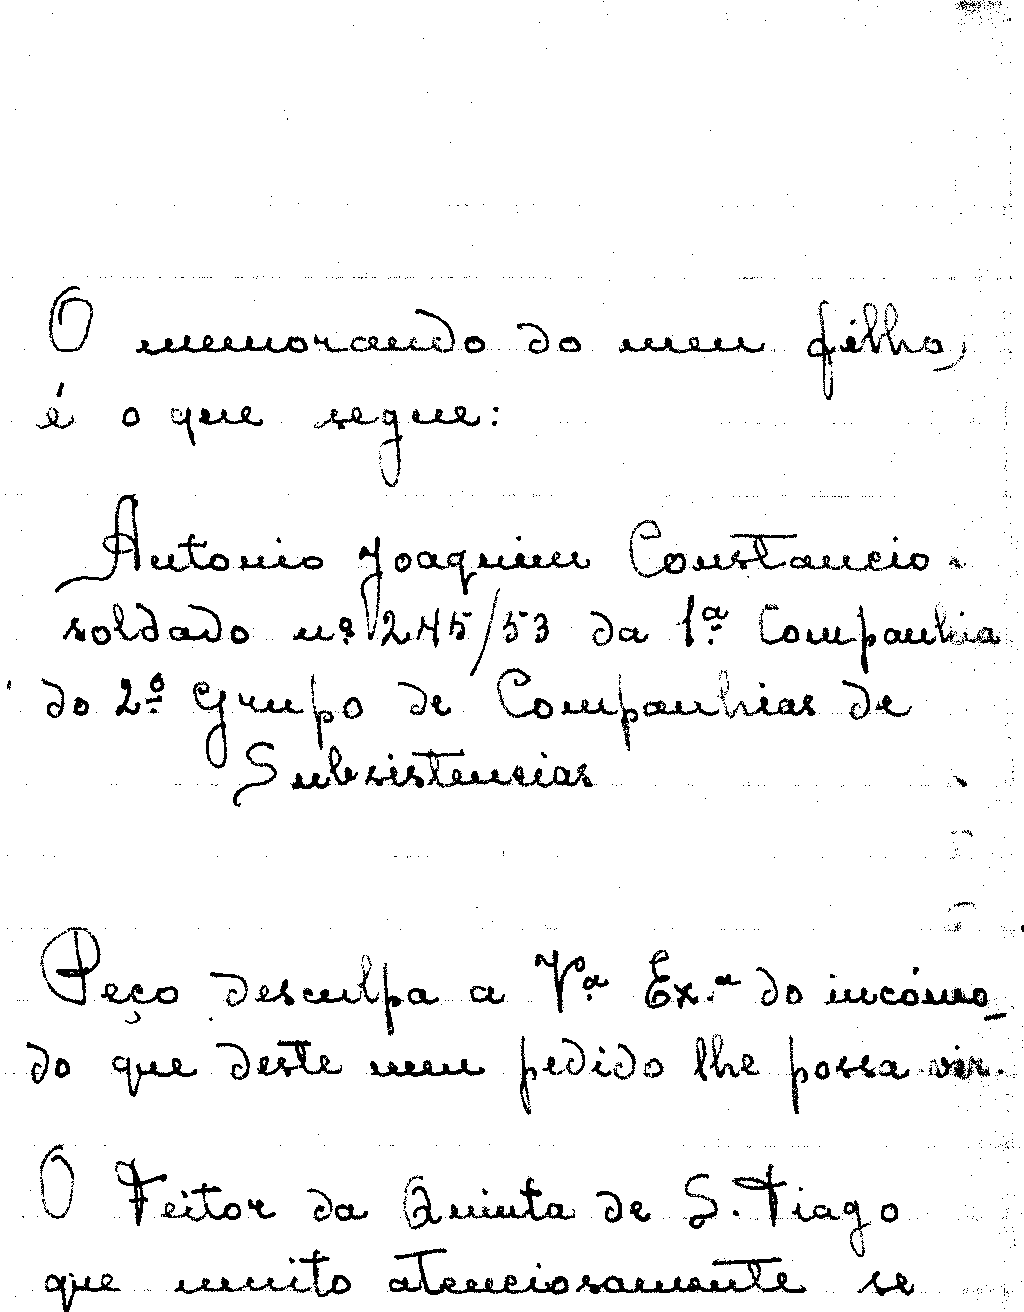 O memorando do meu filho,
é o que segue:
Antonio Joaquim Constancio
soldado nº 245/53 da 1ª Companhia
do 2º Grupo de Companhias de
Subsistencias
Peço desculpa a Vª. Ex.ª do incómo_
do que deste meu pedido lhe possa vir.
O Feitor da Quinta de S. Tiago
que muito atenciosamente se